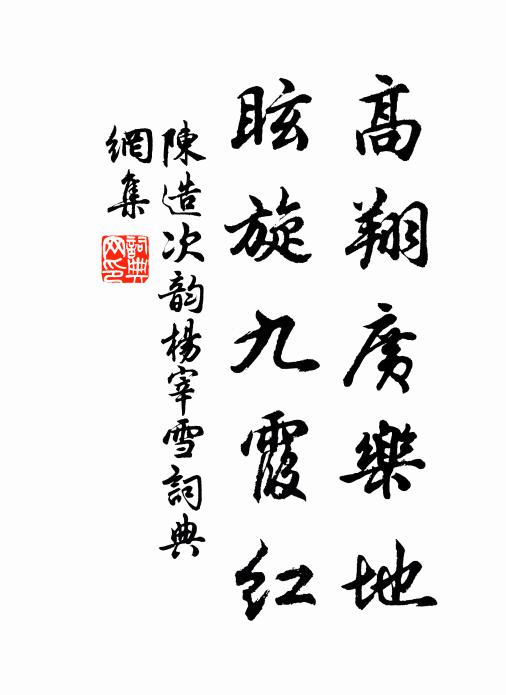 高翔廣樂地
眩旋九霞紅
陳造次韵楊宰雪詞典
網集
詞典網印